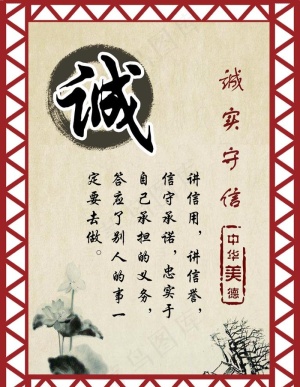 诚
诚实守信
中华美德
讲信用，讲信誉，
信守承诺，忠实于
自己承担的义务，
答应了别人的事一
定要去做。